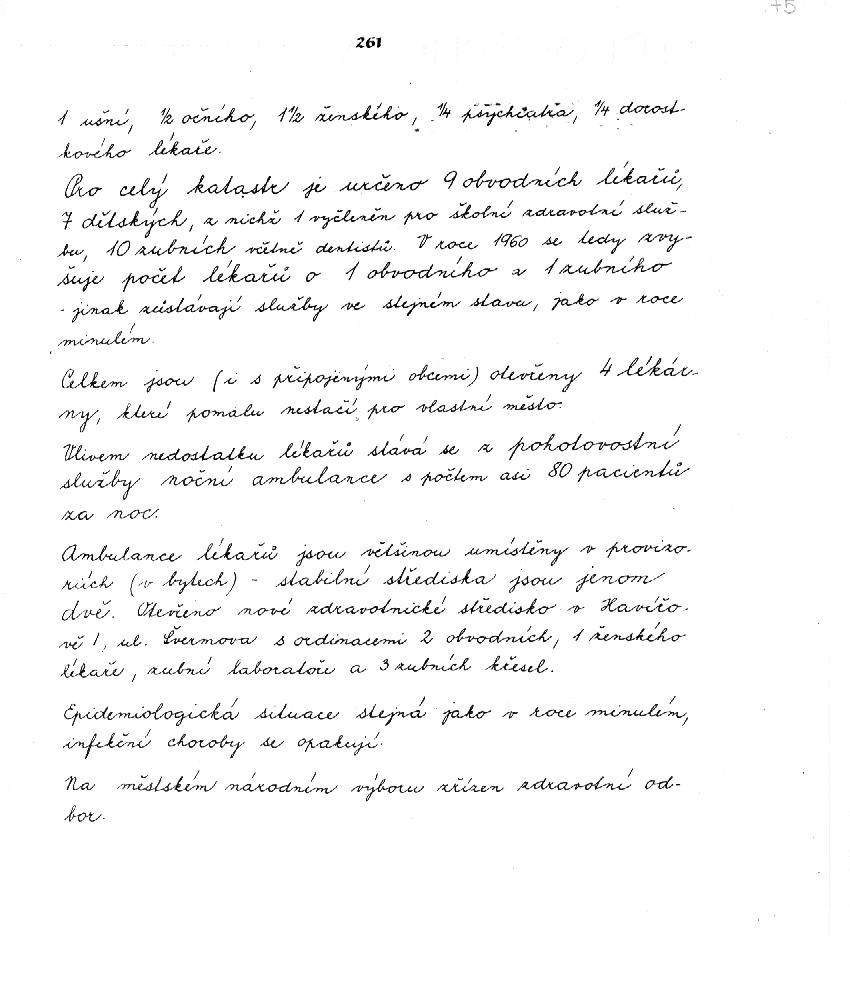 +5
261
1 ušní, 1/2 očního, 1 1/2 ženského, 1/4 psychiatra, 1/4 dorost-
kového lékaře.
Pro celý katastr je určeno 9 obvodních lékařů,
7 dětských, z nichž 1 vyčleněn pro školní zdravotní služ-
bu, 10 zubních včetně dentistů. V roce 1960 se tedy zvy-
šuje počet lékařů o 1 obvodního a 1 zubního
- jinak zůstávají služby ve stejném stavu, jako v roce
minulém.
Celkem jsou (i s připojenými obcemi) otevřeny 4 lékár-
ny, které pomalu nestačí pro vlastní město.
Vlivem nedostatku lékařů stává se z pohotovostní
služby noční ambulance s počtem asi 80 pacientů
za noc.
Ambulance lékařů jsou většinou umístěny v provizo-
riích (v bytech) - stabilní střediska jsou jenom
dvě. Otevřeno nové zdravotnické středisko v Havířo-
vě 1, ul. Švermova s ordinacemi 2 obvodních, 1 ženského
lékaře, zubní laboratoře a 3 zubních křesel.
Epidemiologická situace stejná jako v roce minulém,
infekční choroby se opakují.
Na městském národním výboru zřízen zdravotní od-
bor.